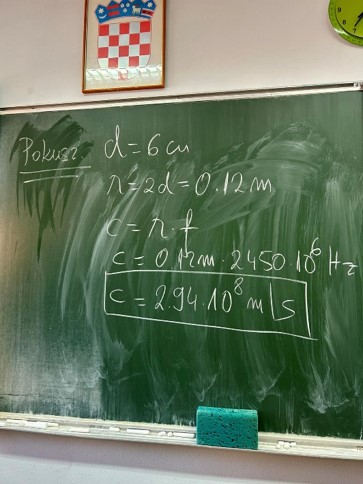 Pokus: d = 6 cm
λ = 2d = 0.12 m
c = λ · f
c = 0.12 m · 2450 · 10⁶ Hz
c = 2.94 · 10⁸ m/s